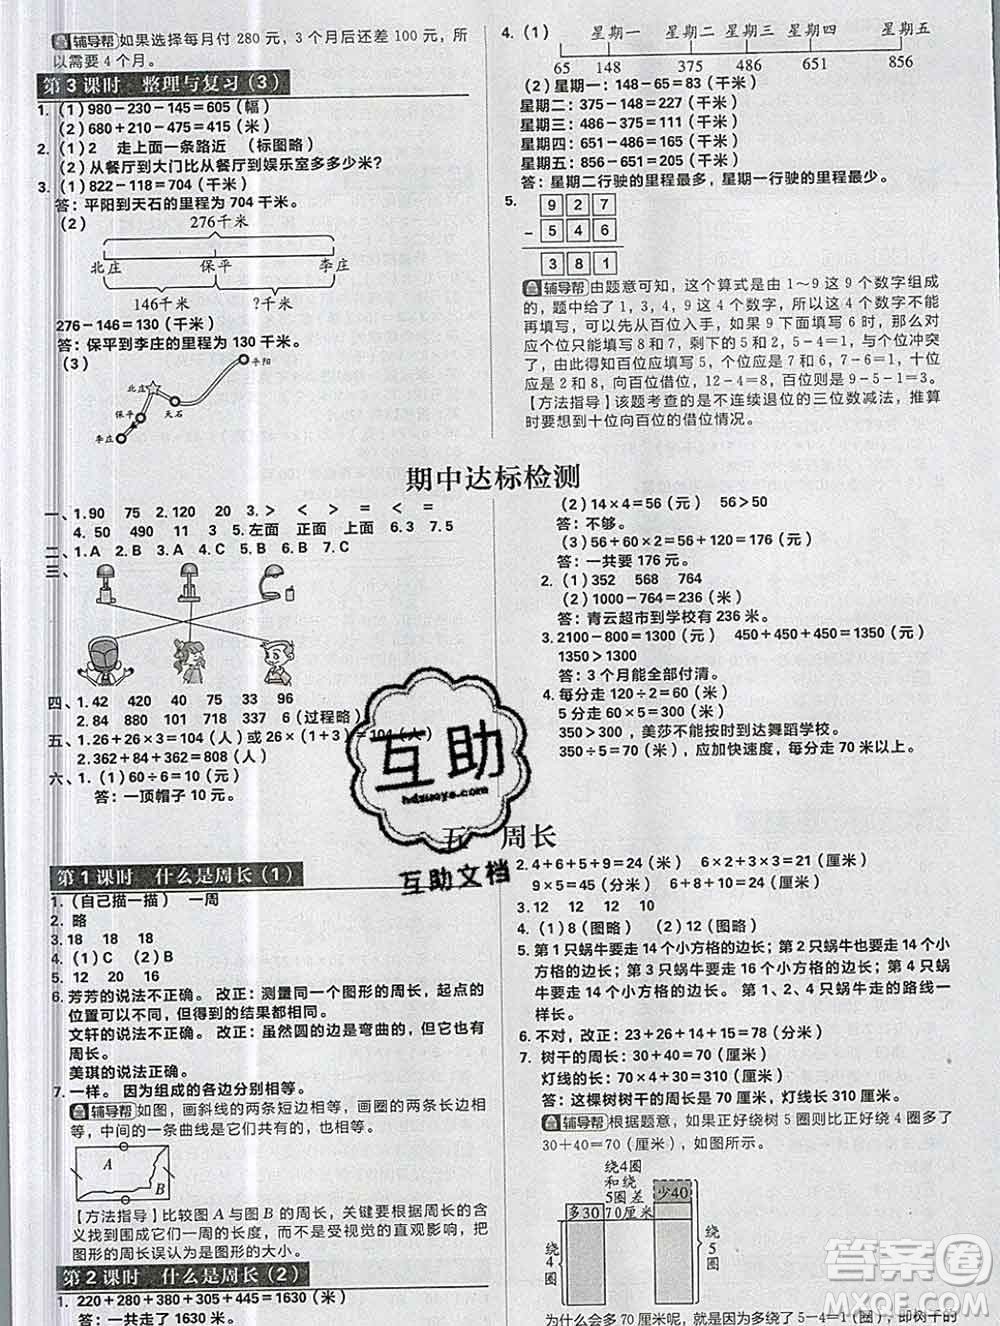 辅导帮 如果选择每月付 280 元，3 个月后还差 100 元，所
以需要 4 个月。
第 3 课时　整理与复习（3）
1. （1）980－230－145＝605（幅）
（2）680＋210－475＝415（米）
2. （1）2　走上面一条路近　（标图略）
（2）从餐厅到大门比从餐厅到娱乐室多多少米？
3. （1）822－118＝704（千米）
答：平阳到天石的里程为 704 千米。
（2）
276千米
北庄　保平　李庄
146千米　?千米
276－146＝130（千米）
答：保平到李庄的里程为 130 千米。
（3）
平阳
北庄
天石
保平
李庄
4. （1）　星期一　星期二　星期三　星期四　星期五
65　148　375　486　651　856
（2）星期一：148－65＝83（千米）
星期二：375－148＝227（千米）
星期三：486－375＝111（千米）
星期四：651－486＝165（千米）
星期五：856－651＝205（千米）
答：星期二行驶的里程最多，星期一行驶的里程最少。
5. 9 2 7
－ 5 4 6
3 8 1
辅导帮 由题意可知，这个算式是由 1～9 这 9 个数字组成
的，题中给了 1，3，4，9 这 4 个数字，所以这 4 个数字不能
再填写，可以先从百位入手，如果 9 下面填写 6 时，那么对
应个位只能填写 8 和 7，剩下的 5 和 2，5－4＝1，与个位冲突
了，由此得知百位应填写 5，个位是 7 和 6，7－6＝1，十位
应是 2 和 8，向百位借位，12－4＝8，百位则是 9－5－1＝3。
【方法指导】该题考查的是不连续退位的三位数减法，推算
时要想到十位向百位的借位情况。
期中达标检测
一、1.90　75　2.120　20　3.＞　＜　＞　＝　＜　＝
4. 50　490　11　3　5.左面　正面　上面　6.3　7.5
二、1.A　2.B　3.A　4.C　5.B　6.B　7.C
三、
四、1.42　420　40　75　33　96
2.84　880　101　718　337　6（过程略）
五、1.26＋26×3＝104（人）或 26×（1＋3）＝104（人）
2.362＋84＋362＝808（元）
六、1.（1）60÷6＝10（元）
答：一顶帽子 10 元。
（2）14×4＝56（元）　56＞50
答：不够。
（3）56＋60×2＝56＋120＝176（元）
答：一共要 176 元。
2.（1）352　568　764
（2）1000－764＝236（米）
答：青云超市到学校有 236 米。
3. 2100－800＝1300（元）　450＋450＋450＝1350（元）
1350＞1300
答：3 个月能全部付清。
4. 每分走 120÷2＝60（米）
5 分走 60×5＝300（米）
350＞300　答：美莎不能按时到达舞蹈学校。
350÷5＝70（米），应加快速度，每分走 70 米以上。
互助
hdzuoye.com
互助文档
五　周长
第 1 课时　什么是周长（1）
1. （自己描一描）　一周
2. 略
3. 18　18　18
4. （1）C　（2）B
5. 12　20　16
6. 芳芳的说法不正确。 改正：测量同一个图形的周长，起点的
位置可以不同，但得到的结果都相同。
文轩的说法不正确。 改正：虽然圆的边是弯曲的，但它也有
周长。
美琪的说法正确。
7. 一样。 因为组成的各边分别相等。
辅导帮 如图，画斜线的两条短边相等，画圈的两条长边相
等，中间的一条曲线是它们共有的，也相等。
A
B
【方法指导】比较图 A 与图 B 的周长，关键要根据周长的含
义找到围成它们一周的长度，防止受视觉的直观影响，把
图形的周长误认为是图形的大小。
第 2 课时　什么是周长（2）
1. 220＋280＋380＋305＋445＝1630（米）
答：一共走了 1630 米。
2. 4＋6＋5＋9＝24（分米）　6×2＋3＋7＝22（厘米）
9×5＝45（分米）　6＋8＋10＝24（厘米）
3. 12　12　12　10
4. （1）8（图略）　（2）12（图略）
5. 第 1 只蜗牛要走 14 个小方格的边长；第 2 只蜗牛也要走 14
个小方格的边长；第 3 只蜗牛要走 16 个小方格的边长；第 4
只蜗牛要走 14 个小方格的边长。 第 1、2、4 只走的路线一
样长。
6. 不对，改正：23＋26＋14＋15＝78（分米）
7. 树干的周长：30＋40＝70（厘米）
灯线的长：70×4＋30＝310（厘米）
答：这棵树树干的周长是 70 厘米，灯线长 310 厘米。
辅导帮 根据题意，如果正好绕树 5 圈则比正好绕 4 圈多了
30＋40＝70（厘米），如图所示。
绕4圈
和绕
5圈差
70厘米
多30
少40
绕4圈
绕5圈
为什么会多 70 厘米呢，就是因为多绕了 5－4＝1（圈），即树干的
答案圈
MXQE.COM